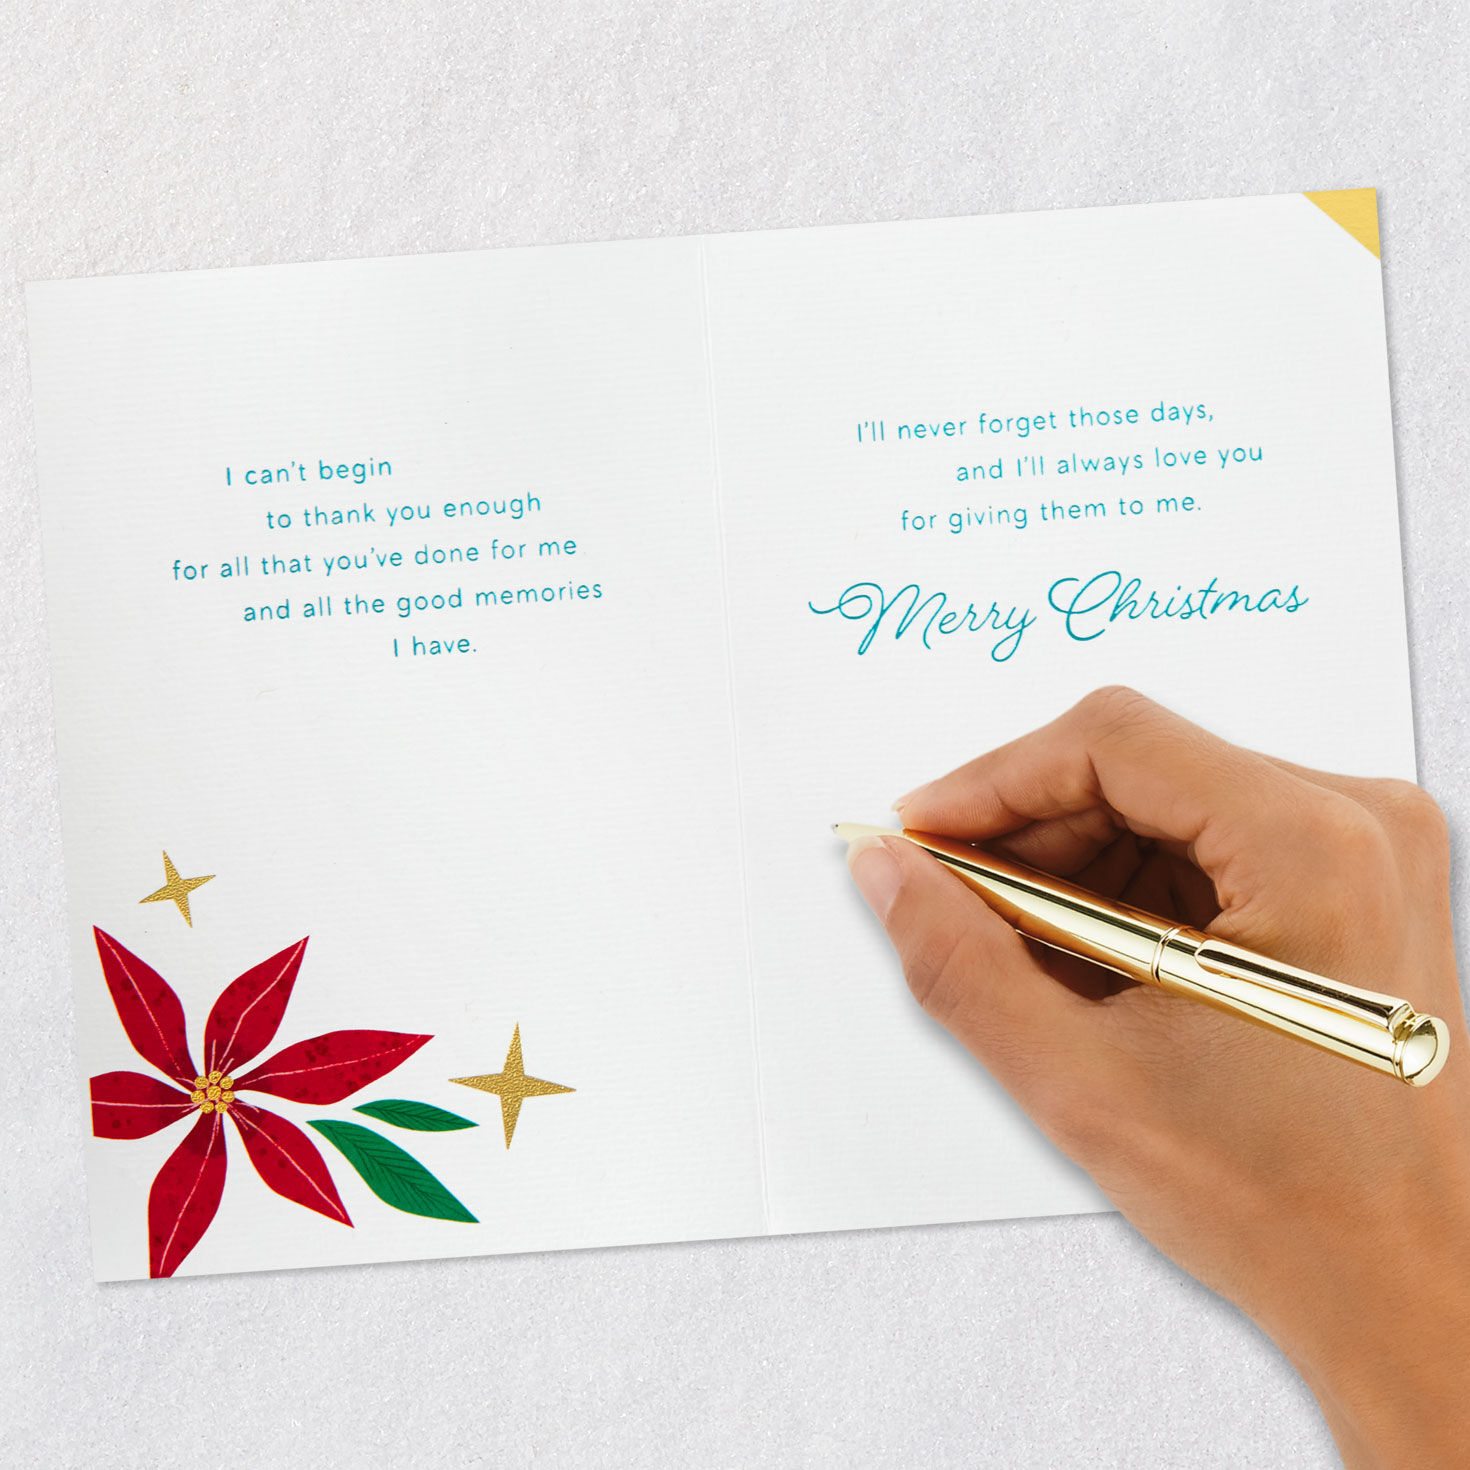 I can't begin
to thank you enough
for all that you've done for me
and all the good memories
I have.
I'll never forget those days,
and I'll always love you
for giving them to me.
Merry Christmas